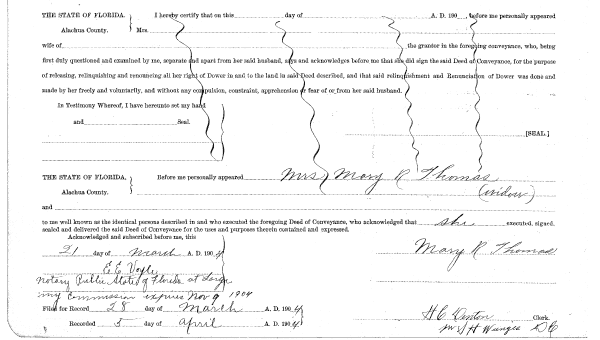 THE STATE OF FLORIDA. I hereby certify that on this day of A. D. 190 before me personally appeared
Alachua County. Mrs.
wife of the grantor in the foregoing conveyance, who, being
first duly questioned and examined by me, separate and apart from her said husband, says and acknowledges before me that she did sign the said Deed of Conveyance, for the purpose
of releasing, relinquishing and renouncing all her right of Dower in and to the land in said Deed described, and that said relinquishment and Renunciation of Dower was done and
made by her freely and voluntarily, and without any compulsion, constraint, apprehension or fear of or from her said husband.
In Testimony Whereof, I have hereunto set my hand
and Seal.
[SEAL.]
THE STATE OF FLORIDA. Before me personally appeared Mrs Mary R Thomas
Alachua County. (widow)
and
to me well known as the identical persons described in and who executed the foregoing Deed of Conveyance, who acknowledged that she executed, signed,
sealed and delivered the said Deed of Conveyance for the uses and purposes therein contained and expressed.
Acknowledged and subscribed before me, this
21 day of March A. D. 190 4 Mary R Thomas
E E Voyle
Notary Public State of Florida at Large
my Commission expires Nov 9 1904
Filed for Record 28 day of March A. D. 190 4 H C Denton Clerk.
Recorded 5 day of April A. D. 190 4 D C